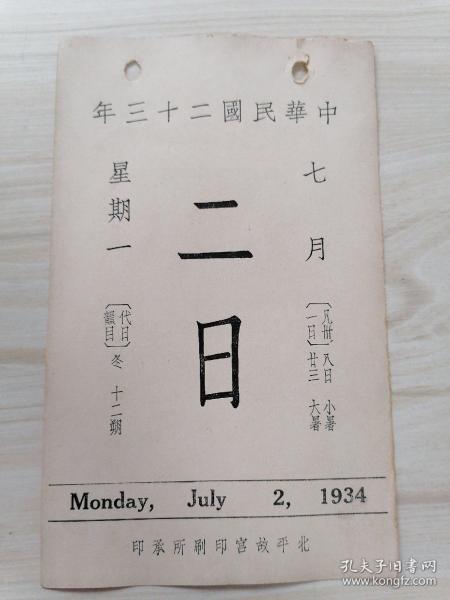 中華民國二十三年
七月
〔凡卅一日〕
八日 小暑
廿三 大暑
二日
星期一
〔代日韻目〕冬 十二朔
Monday, July 2, 1934
北平故宮印刷所承印
孔夫子旧书网
www.kongfz.com